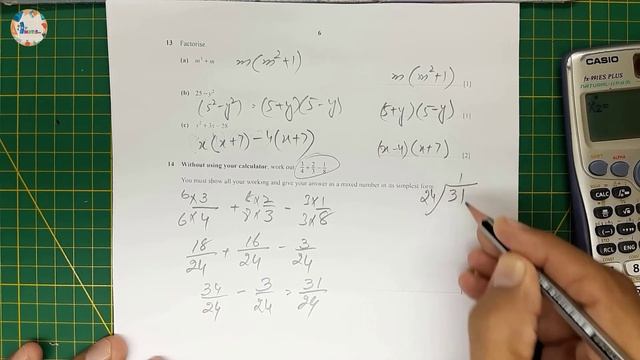 6
13 Factorise.
(a) m³ + m m(m²+1) m(m²+1) [1]
(b) 25 – y² (5²-y²) = (5+y)(5-y) (5+y)(5-y) [1]
(c) x² + 3x – 28 x(x+7) - 4(x+7) (x-4)(x+7) [2]
14 Without using your calculator, work out 3/4 + 2/3 – 1/8
You must show all your working and give your answer as a mixed number in its simplest form.
6×3/6×4 + 8×2/8×3 - 3×1/3×8
24 31 1
18/24 + 16/24 - 3/24
34/24 - 3/24 = 31/24
CASIO
fx-991ES PLUS
NATURAL
8